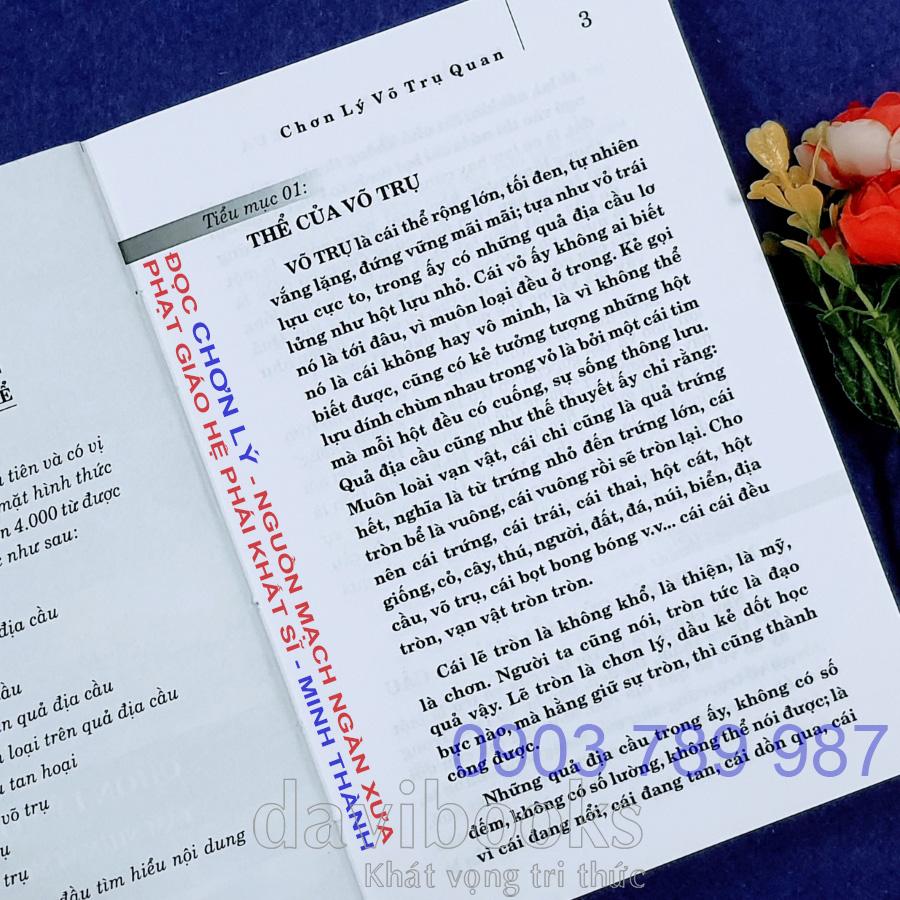 ỂỂ
tiên và có vị
mặt hình thức
n 4.000 từ được
như sau:
địa cầu
ầu
n quả địa cầu
loại trên quả địa cầu
tan hoại
võ trụ
trụ
đầu tìm hiểu nội dung
3
Chơn Lý Võ Trụ Quan
Tiểu mục 01:
THỂ CỦA VÕ TRỤ
VÕ TRỤ là cái thể rộng lớn, tối đen, tự nhiên
vắng lặng, đứng vững mãi mãi; tựa như vỏ trái
lựu cực to, trong ấy có những quả địa cầu lơ
lửng như hột lựu nhỏ. Cái vỏ ấy không ai biết
nó là tới đâu, vì muôn loại đều ở trong. Kẻ gọi
nó là cái không hay vô minh, là vì không thể
biết được, cũng có kẻ tưởng tượng những hột
lựu dính chùm nhau trong vỏ là bởi một cái tim
mà mỗi hột đều có cuống, sự sống thông lưu.
Quả địa cầu cũng như thế thuyết ấy chỉ rằng:
Muôn loài vạn vật, cái chi cũng là quả trứng
hết, nghĩa là từ trứng nhỏ đến trứng lớn, cái
tròn bể là vuông, cái vuông rồi sẽ tròn lại. Cho
nên cái trứng, cái trái, cái thai, hột cát, hột
giống, cỏ, cây, thú, người, đất, đá, núi, biển, địa
cầu, võ trụ, cái bọt bong bóng v.v... cái cái đều
tròn, vạn vật tròn tròn.
Cái lẽ tròn là không khổ, là thiện, là mỹ,
là chơn. Người ta cũng nói, tròn tức là đạo
quả vậy. Lẽ tròn là chơn lý, dầu kẻ dốt học
bực nào, mà hằng giữ sự tròn, thì cũng thành
công được.
Những quả địa cầu trong ấy, không có số
đếm, không có số lường, không thể nói được; là
vì cái đang nổi, cái đang tan, cái dồn qua, cái
ĐỌC CHƠN LÝ - NGUỒN MẠCH NGÀN XƯA
PHẬT GIÁO HỆ PHÁI KHẤT SĨ - MINH THÀNH
0903 789 987
davibooks
Khát vọng tri thức